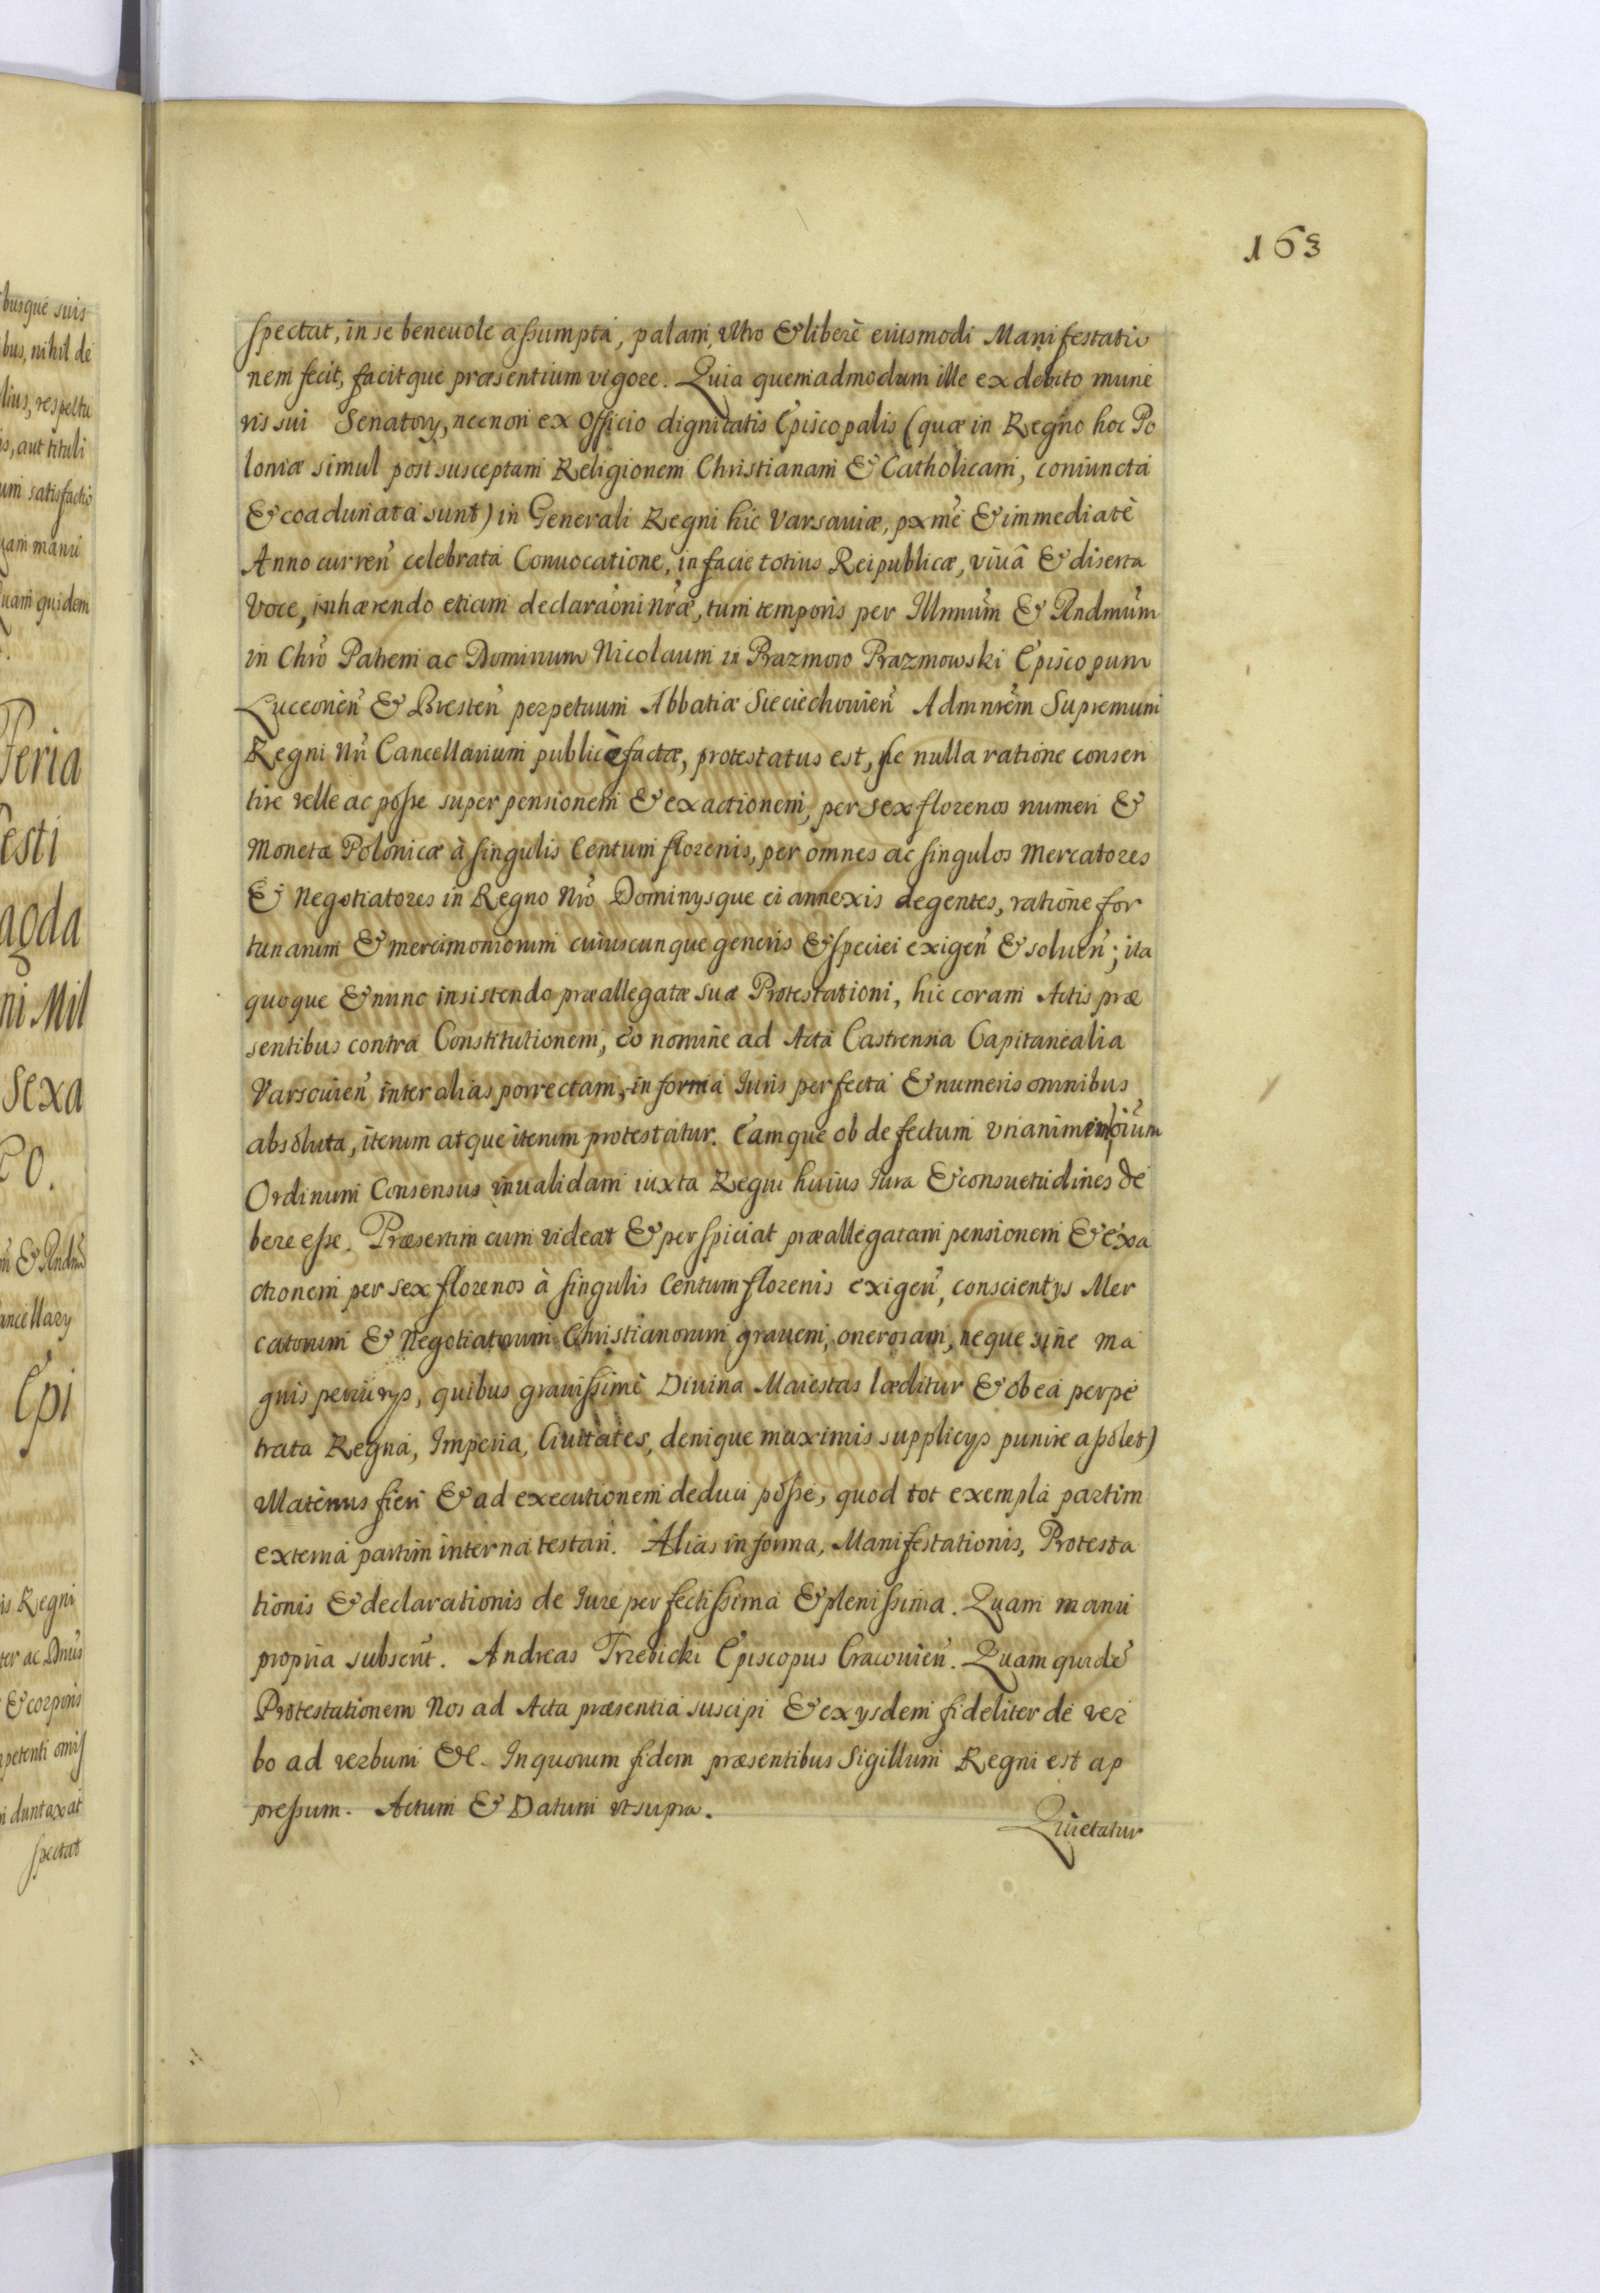 163
spectat, in se beneuole assumpta, palam, vltro & liberè eiusmodi Manifestatio
nem fecit, facitque præsentium vigore. Quia quemadmodum ille ex debito mune
ris sui Senatorij, necnon ex Officio dignitatis Episcopalis (quæ in Regno hoc Po
loniæ simul post susceptam Religionem Christianam & Catholicam, coniuncta
& coadunata sunt) in Generali Regni hic Varsauiæ, pxmè & immediatè
Anno curren̄ celebrata Conuocatione, in facie totius Reipublicæ, viuâ & diserta
Voce, inhærendo etiam declarãoni nr̃æ, tum temporis per Illmũm & Rndmũm
in Chr̃o Patrem ac Dominum Nicolaum in Prazmow Prazmowski Episcopum
Luceorien̄ & Bresten̄ perpetuum Abbatiæ Sieciechouien̄ Admnr̃em Supremum
Regni Nr̃i Cancellarium publicè factæ, protestatus est, se nulla ratione consen
tire velle ac posse super pensionem & exactionem, per sex florenos numeri &
Monetæ Polonicæ à singulis Centum florenis, per omnes ac singulos Mercatores
& Negotiatores in Regno Nr̃o Dominijsque ei annexis degentes, ratione for
tunarum & mercimoniorum cuiuscunque generis & speciei exigen̄ & soluen̄; ita
quoque & nunc insistendo præallegatæ suæ Protestationi, hic coram Actis præ
sentibus contra Constitutionem, eo nomine ad Acta Castrensia Capitanealia
Varsouien̄ inter alias porrectam, in forma Iuris perfecta & numeris omnibus
absoluta, iterum atque iterum protestatur. Eamque ob defectum vnanimis oiũm
Ordinum Consensus inualidam iuxta Regni huius Iura & consuetudines de
bere esse. Præsertim cum videat & perspiciat præallegatam pensionem & exa
ctionem per sex florenos à singulis Centum florenis exigen̄, conscientijs Mer
catorum & Negotiatorum Christianorum grauem, onerosam, neque sine ma
gnis periurijs, quibus grauissimè Diuina Maiestas læditur & ob ea perpe
trata Regna, Imperia, Ciuitates, denique maximis supplicijs punire assolet)
vllatenus fieri & ad executionem deduci posse, quod tot exempla partim
externa partim interna testari. Alias in forma, Manifestationis, Protesta
tionis & declarationis de Iure perfectissima & plenissima. Quam manu
propria subscrit̄. Andreas Trzebicki Episcopus Cracouien̄. Quam quidē
Protestationem Nos ad Acta præsentia suscipi & ex ijsdem fideliter de ver
bo ad verbum &c. In quorum fidem præsentibus Sigillum Regni est ap
pressum. Actum & Datum vt supra.
Quietatur